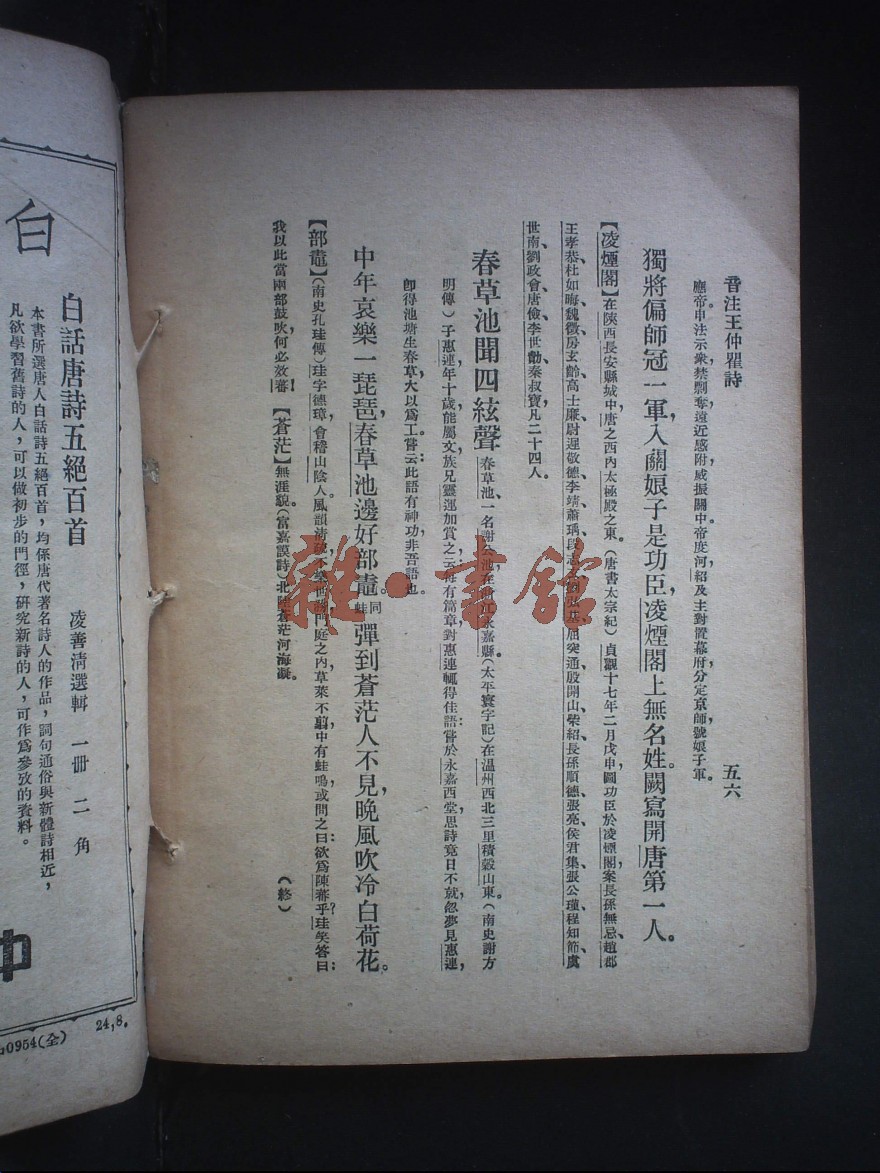 音注王仲瞿詩
五六
應帝申法示衆禁剽奪遠近感附威振關中帝度河紹及主對置幕府分定京師號娘子軍。
獨將偏師冠一軍，入關娘子是功臣，凌煙閣上無名姓。闕寫開唐第一人。
【凌煙閣】在陝西長安縣城中唐之西內太極殿之東。（唐書太宗紀）貞觀十七年二月戊申圖功臣於凌煙閣案長孫無忌、趙郡
王孝恭、杜如晦、魏徵、房玄齡、高士廉、尉遲敬德、李靖、蕭瑀、段志玄、劉弘基、屈突通、殷開山、柴紹、長孫順德、張亮、侯君集、張公瑾、程知節、虞
世南、劉政會、唐儉、李世勣、秦叔寶、凡二十四人。
春草池聞四絃聲 春草池、一名謝公池、在浙江永嘉縣。（太平寰宇記）在溫州西北三里積穀山東。（南史謝方
明傳）子惠連、年十歲能屬文族兄靈運加賞之云每有篇章對惠連輒得佳語嘗於永嘉西堂思詩竟日不就忽夢見惠連，
卽得池塘生春草大以爲工嘗云此語有神功非吾語也。
中年哀樂一琵琶，春草池邊好部鼃。同蛙彈到蒼茫人不見，晚風吹冷白荷花。
【部鼃】（南史孔珪傳）珪字德璋，會稽山陰人風韻清疎不樂世務門庭之內草萊不翦中有蛙鳴或問之曰：欲爲陳蕃乎？珪笑答曰：
我以此當兩部鼓吹何必效蕃！ 【蒼茫】無涯貌（富嘉謨詩）北陸蒼茫河海凝。
（終）
白
白話唐詩五絕百首 凌善清選輯 一冊 二角
本書所選唐人白話詩五絕百首，均係唐代著名詩人的作品，詞句通俗與新體詩相近，
凡欲學習舊詩的人，可以做初步的門徑，研究新詩的人，可作爲參攷的資料。
0954(全) 24,8.
雜·書館